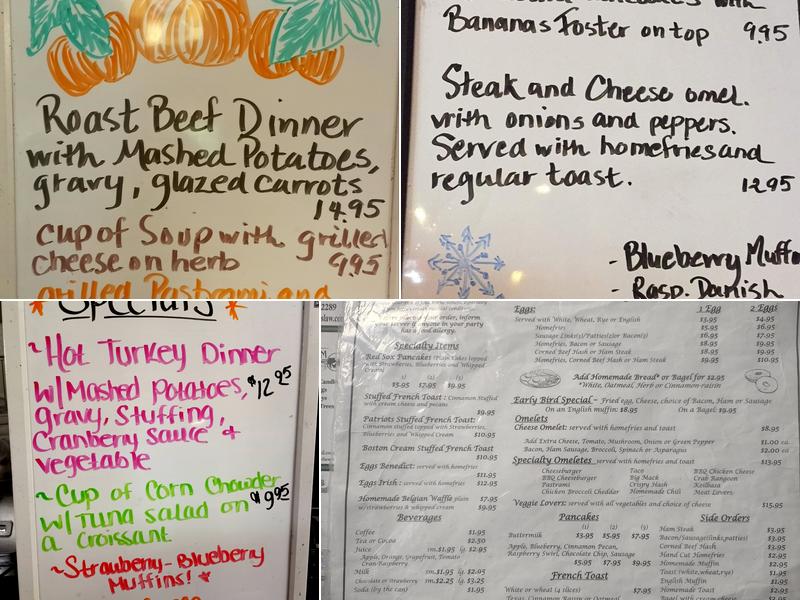 Roast Beef Dinner
with Mashed Potatoes,
gravy, glazed carrots
14.95
cup of Soup with grilled
cheese on herb 9.95
grilled Pastrami and
Bananas Foster on top 9.95
Steak and Cheese omel.
with onions and peppers.
Served with homefries and
regular toast. 12.95
- Blueberry Muffo
- Rasp. Danish
Specials
~Hot Turkey Dinner
w/Mashed Potatoes, $12.95
gravy, Stuffing,
Cranberry Sauce +
vegetable
~Cup of Corn Chowder
w/Tuna salad on $9.95
a Croissant
~Strawberry-Blueberry
Muffins!
2289
order, inform
your server if anyone in your party
has a food allergy.
Specialty Items
Red Sox Pancakes
(1) (2) (3)
$5.95 $7.95 $9.95
Stuffed French Toast: Cinnamon Stuffed
with cream cheese and pecans
$9.95
Patriots Stuffed French Toast:
Cinnamon stuffed topped with Strawberries,
Blueberries and Whipped Cream $10.95
Boston Cream Stuffed French Toast
$10.95
Eggs Benedict: served with homefries
$11.95
Eggs Irish: served with homefries
$12.95
Homemade Belgian Waffle plain $7.95
w/strawberries & whipped cream $9.95
Beverages
Coffee $1.95
Tea or Cocoa $2.50
Juice sm.$1.95 lg. $2.95
Apple, Orange, Grapefruit, Tomato
Cran-Raspberry
Milk sm.$1.95 lg. $2.95
Chocolate or Strawberry sm.$2.25 lg. $3.25
Soda (by the can) $1.95
Eggs: 1 Egg 2 Eggs
Served with White, Wheat, Rye or English $3.95 $4.95
Homefries $5.95 $6.95
Sausage Links(3)/Patties(2)or Bacon(3) $6.95 $7.95
Homefries, Bacon or Sausage $8.95 $9.95
Corned Beef Hash or Ham Steak $8.95 $9.95
Homefries, Corned Beef Hash or Ham Steak $9.95 $10.95
Add Homemade Bread* or Bagel for $2.95
*White, Oatmeal, Herb or Cinnamon-raisin
Early Bird Special - Fried egg, Cheese, choice of Bacon, Ham or Sausage
On an English muffin: $8.95 On a Bagel: $9.95
Omelets
Cheese Omelet: served with homefries and toast $8.95
Add Extra Cheese, Tomato, Mushroom, Onion or Green Pepper $1.00 ea
Bacon, Ham, Sausage, Broccoli, Spinach or Asparagus $2.00 ea
Specialty Omeletes served with homefries and toast $13.95
Cheeseburger Taco BBQ Chicken Cheese
BBQ Cheeseburger Big Mack Crab Rangoon
Pastrami Crispy Hash Keilbasa
Chicken Broccoli Cheddar Homemade Chili Meat Lovers
Veggie Lovers: served with all vegetables and choice of cheese $15.95
Pancakes
(1) (2) (3)
Buttermilk $3.95 $5.95 $7.95
Apple, Blueberry, Cinnamon Pecan,
Raspberry Swirl, Chocolate Chip, Sausage
$5.95 $7.95 $9.95
French Toast
White or wheat (4 slices) $7.95
Texas, Cinnamon Raisin or Oatmeal
Side Orders
Ham Steak $3.95
Bacon/Sausage(links,patties) $3.95
Corned Beef Hash $3.95
Hand Cut Homefries $2.95
Homemade Muffin $2.95
Toast (white,wheat,rye) $1.95
English Muffin $1.95
Homemade Toast $2.95
Bagel with cream cheese